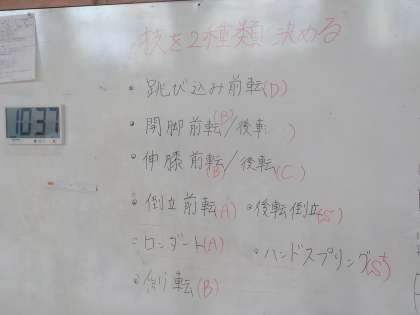 技を2種類決める
・跳び込み前転(D)
・開脚前転(B)/後転 )
・伸膝前転(B)/後転(C)
・倒立前転(A) ・後転倒立(S)
ロンダート(A)
・ハンドスプリング(S+)
・側転(B)
10:37